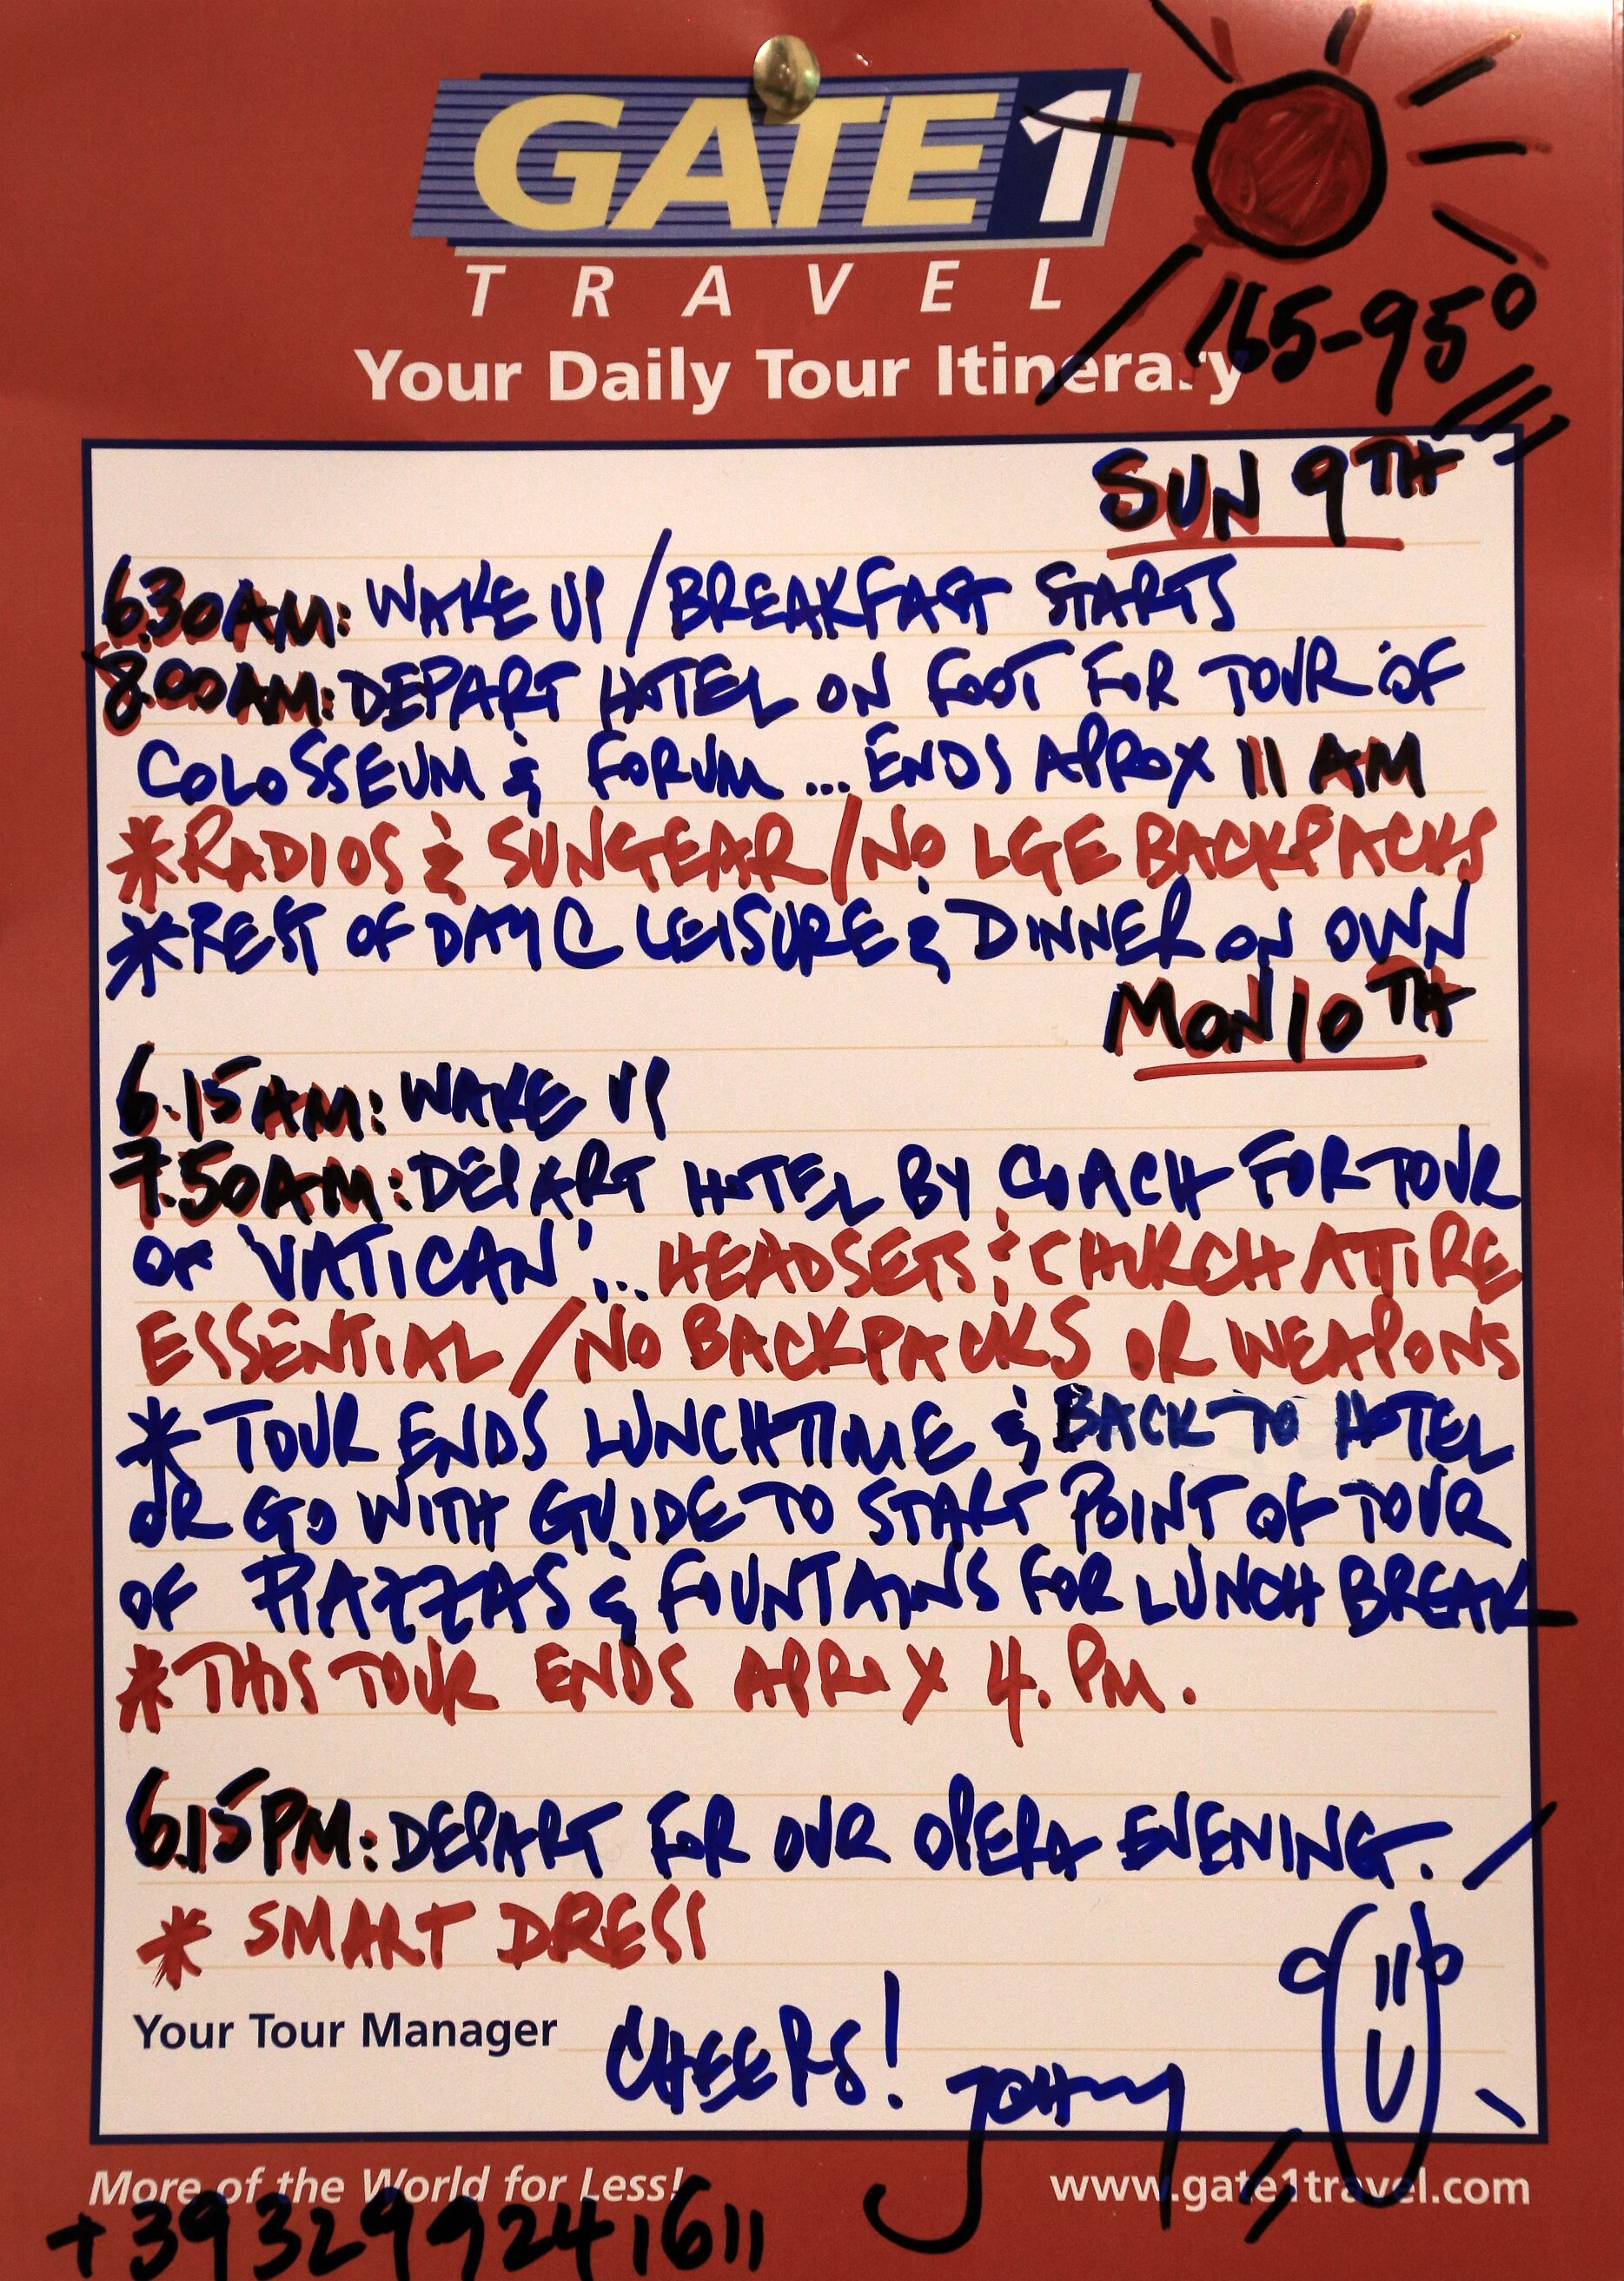 GATE 1
TRAVEL
Your Daily Tour Itinerary
65-95°
SUN 9TH
6.30AM: WAKE UP / BREAKFAST STARTS
8.00AM: DEPART HOTEL ON FOOT FOR TOUR OF
COLOSSEUM & FORUM ... ENDS APROX 11 AM
*RADIOS & SUNGEAR / NO LGE BACKPACKS
*REST OF DAY @ LEISURE & DINNER ON OWN
MON 10TH
6.15AM: WAKE UP
7.50AM: DEPART HOTEL BY COACH FOR TOUR
OF 'VATICAN' ... HEADSETS & CHURCH ATTIRE
ESSENTIAL / NO BACKPACKS OR WEAPONS
* TOUR ENDS LUNCHTIME & BACK TO HOTEL
OR GO WITH GUIDE TO START POINT OF TOUR
OF PIAZZAS & FOUNTAINS FOR LUNCH BREAK
* THIS TOUR ENDS APROX 4. PM.
6.15PM: DEPART FOR OUR OPERA EVENING.
* SMART DRESS
Your Tour Manager CHEERS! JOHNY
More of the World for Less! www.gate1travel.com
+393299241611